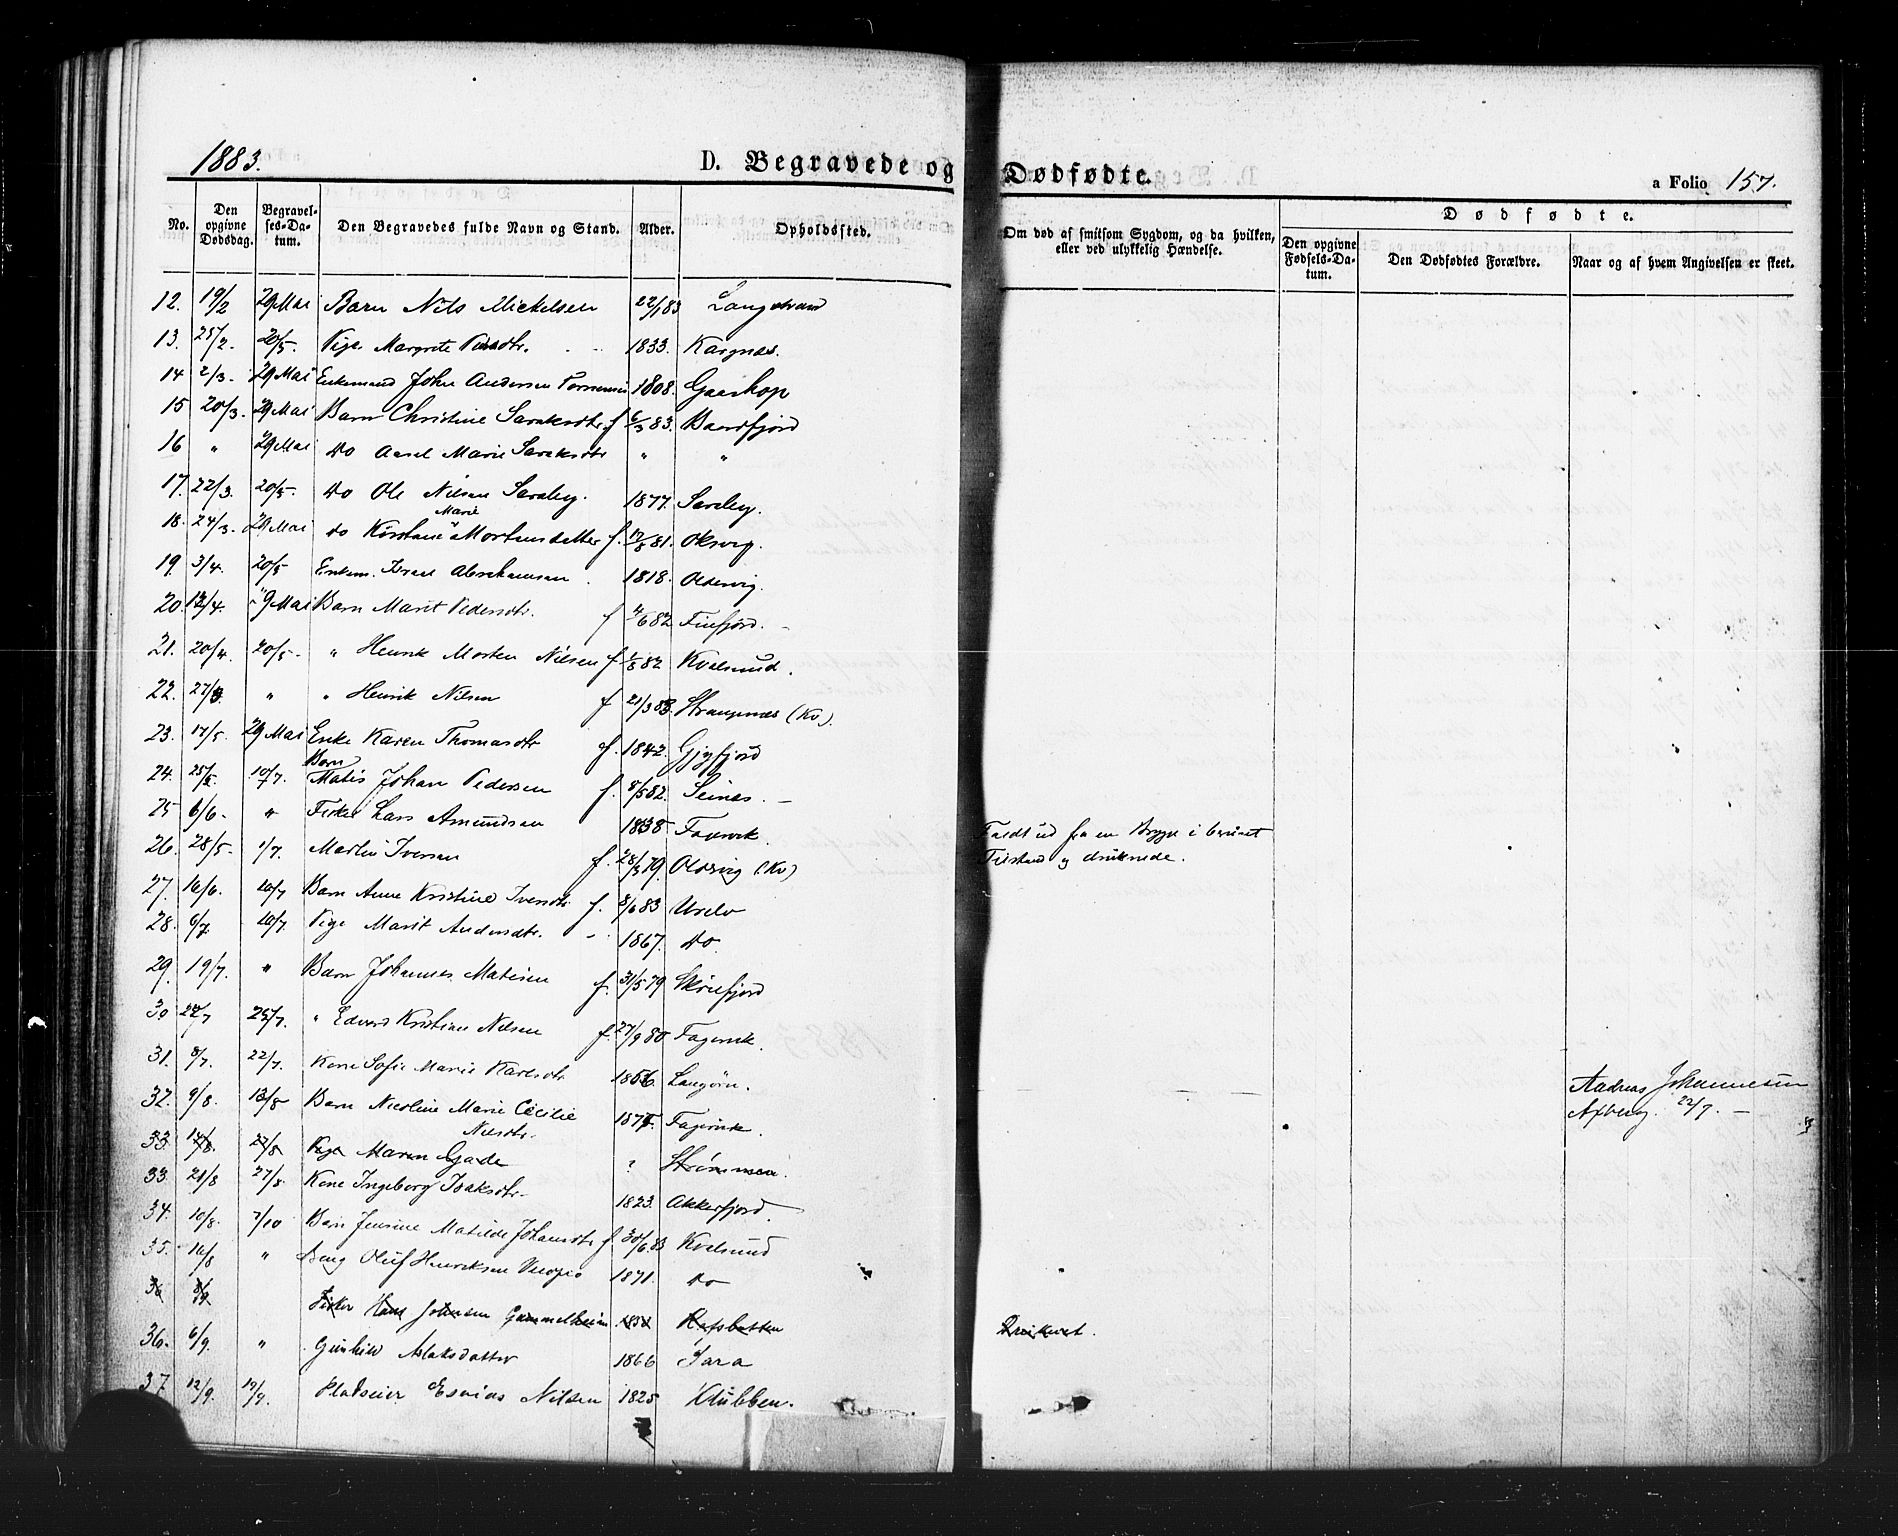 1883.
D. Begravede og
Dødfødte.
a Folio 157.
No. Den opgivne Dødsdag. Begravelses-Datum. Den Begravedes fulde Navn og Stand. Alder. Opholdssted.
Om død af smitsom Sygdom, og da hvilken, eller ved ulykkelig Hændelse.
Dødfødte.
Den opgivne Fødsels-Datum. Den Dødfødtes Forældre. Naar og af hvem Angivelsen er skeet.
12. 19/2 29 Mai Barn Nils Mickelsen 22/1 83 Langstrand
13. 25/2. 20/5. Pige Margrete 1833. Kargnæs.
14 2/3. 29 Mai Enkemand John Andersen 1808. Gaashop
15 20/3. 29 Mai Barn Christine Saraksdtr. f 6/3 83. Baardfjord
16 " 29 Mai do Aasel Marie Saraksdtr " "
17. 22/3. 20/5. do Ole Nilsen Saraby. 1877. Saraby.
Marie
18. 24/3. 29 Mai do Kirstane " Mortensdatter f. 17/8 81. Oksvig.
19. 3/4. 20/5 Enkem. Israel Abrahamsen. 1818. Oldervig.
20. 12/4. 29 Mai Barn Marit Pedersdtr. f 4/6 82 Finfjord.
21. 20/4. 20/5. " Henrik Morten Nilsen f 1/8 82 Kvalsund.
22. 27/3. " " Henrik Nilsen f 21/3 83. Strangnæs (Kv).
23. 17/5. 29 Mai Enke Karen Thomasdtr f. 1842. Gjyfjord
Barn
24. 25/5. 10/7. Matis Johan Pedersen f. 8/5 82. Seines.
25 6/6. " Fisker Lars Amundsen 1838. Fagervik. Faldt ud fra en Brygge i beruset
26. 28/5. 1/7. Martin Iversen f. 28/3 79. Oldervig (Kv) Tilstand og druknede.
27. 16/6. 10/7 Barn Anne Kristine Iversdtr. f. 8/6 83 Ureby
28. 6/7. 10/7. Pige Marit Andersdtr. 1867. do.
29. 19/7. " Barn Johannes Matisen f. 31/5 79 Skreifjord
30 22/7 25/7. " Edvard Kristian Nilsen f. 27/9 80 Fagervik.
31. 8/7. 22/7. Kone Sofie Marie Karlsdtr 1856. Langøen. Andreas Johannesen
32. 9/8. 13/8 Barn Nicoline Marie Cecilie 1875. Fagervik. 22/7.
Nilsdtr.
33. 14/8. 27/8 Pige Maren Gade ? Strømmen.
33. 21/8 27/8. Kone Ingeborg Isaksdtr. 1823. Akkerfjord.
34. 10/8. 7/10 Barn Jensine Matilde Johansdtr f. 30/6 83 Kvalsund
35. 16/8 " Dreng Oluf Henriksen 1871. do
36 3/9. Fisker Hans Johnsen Gammelheim 1854 Rafsbotten Druknet.
36. 6/9. " Gunhild Aslaksdatter 1866 Sara
37. 12/9. 19/9. Pladseier Esaias Nilsen 1825 Klubben.